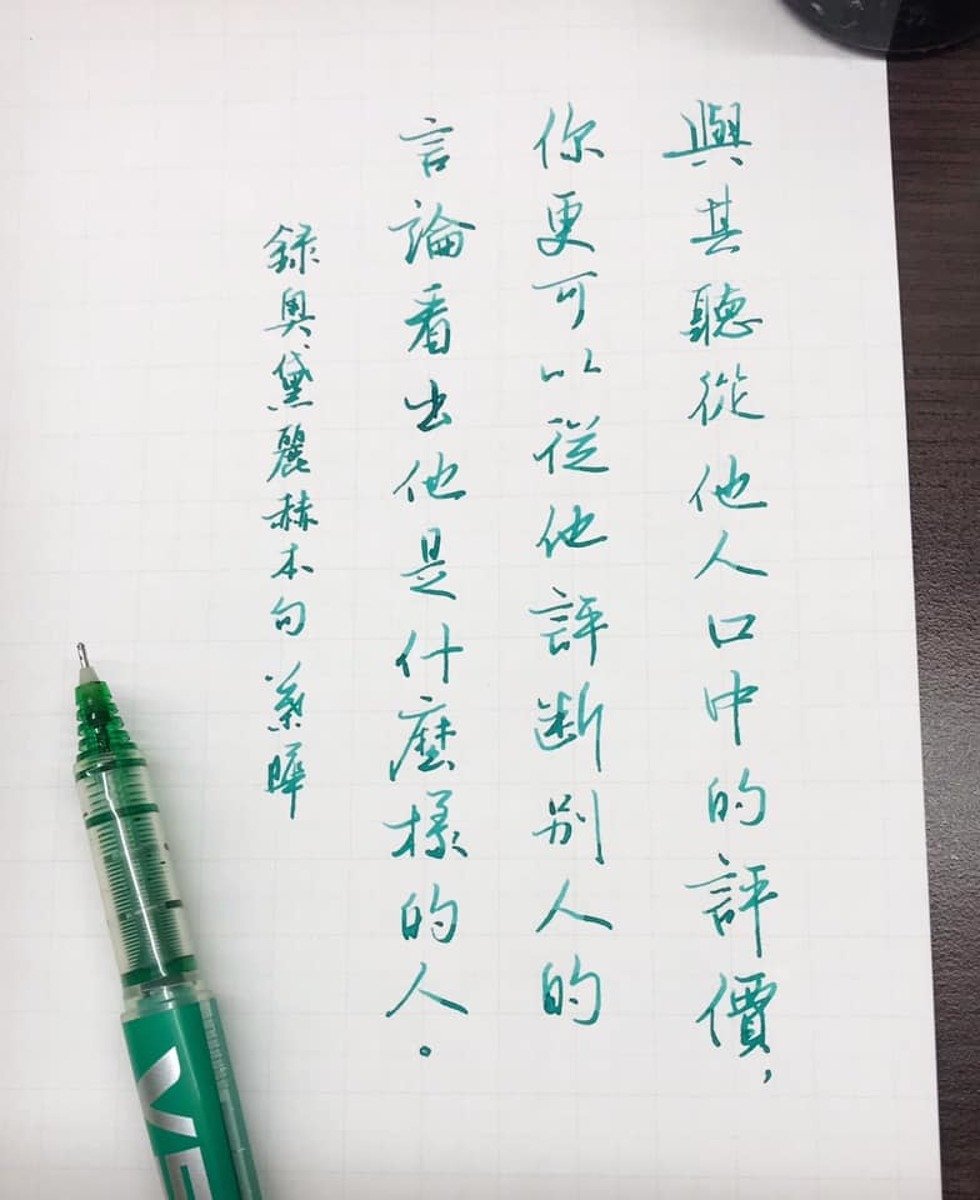 與其聽從他人口中的評價，
你更可以從他評斷別人的
言論看出他是什麼樣的人。
錄奧黛麗赫本句 葉曄